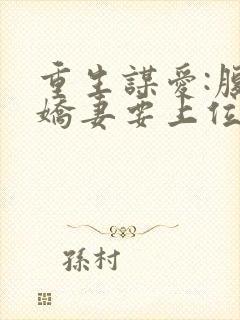 重生謀愛:腹
嬌妻要上位
孫村